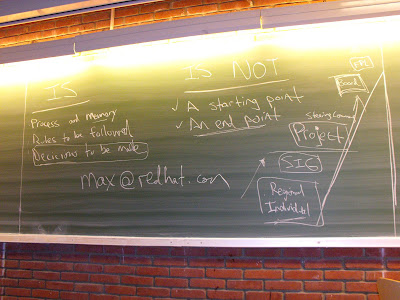 IS
Process and memory
Rules to be followed
Decisions to be made
IS NOT
✓ A starting point
✓ An end point
max@redhat.com
Board
Project
SIG
Regional
Individual